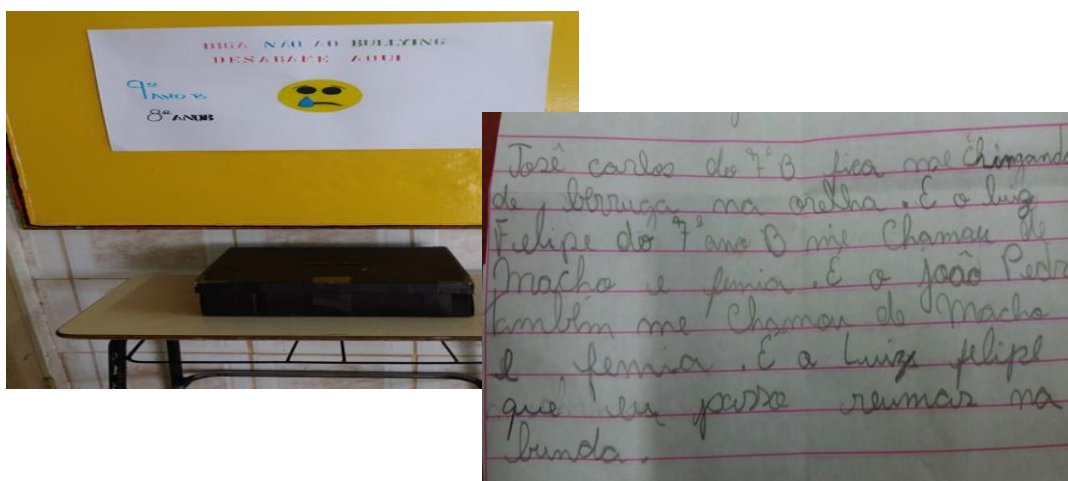 DIGA NÃO AO BULLYING
DESABAFE AQUI
9º
ANO B
8º ANOB
José carlos do 7º B fica me Chingando
de berruga na orelha. E o luiz
Felipe do 7º ano B me Chamou de
Macho e femia. E o joão Pedro
também me Chamou de Macho
e femia. E o Luiz felipe
que eu passo na
bunda.